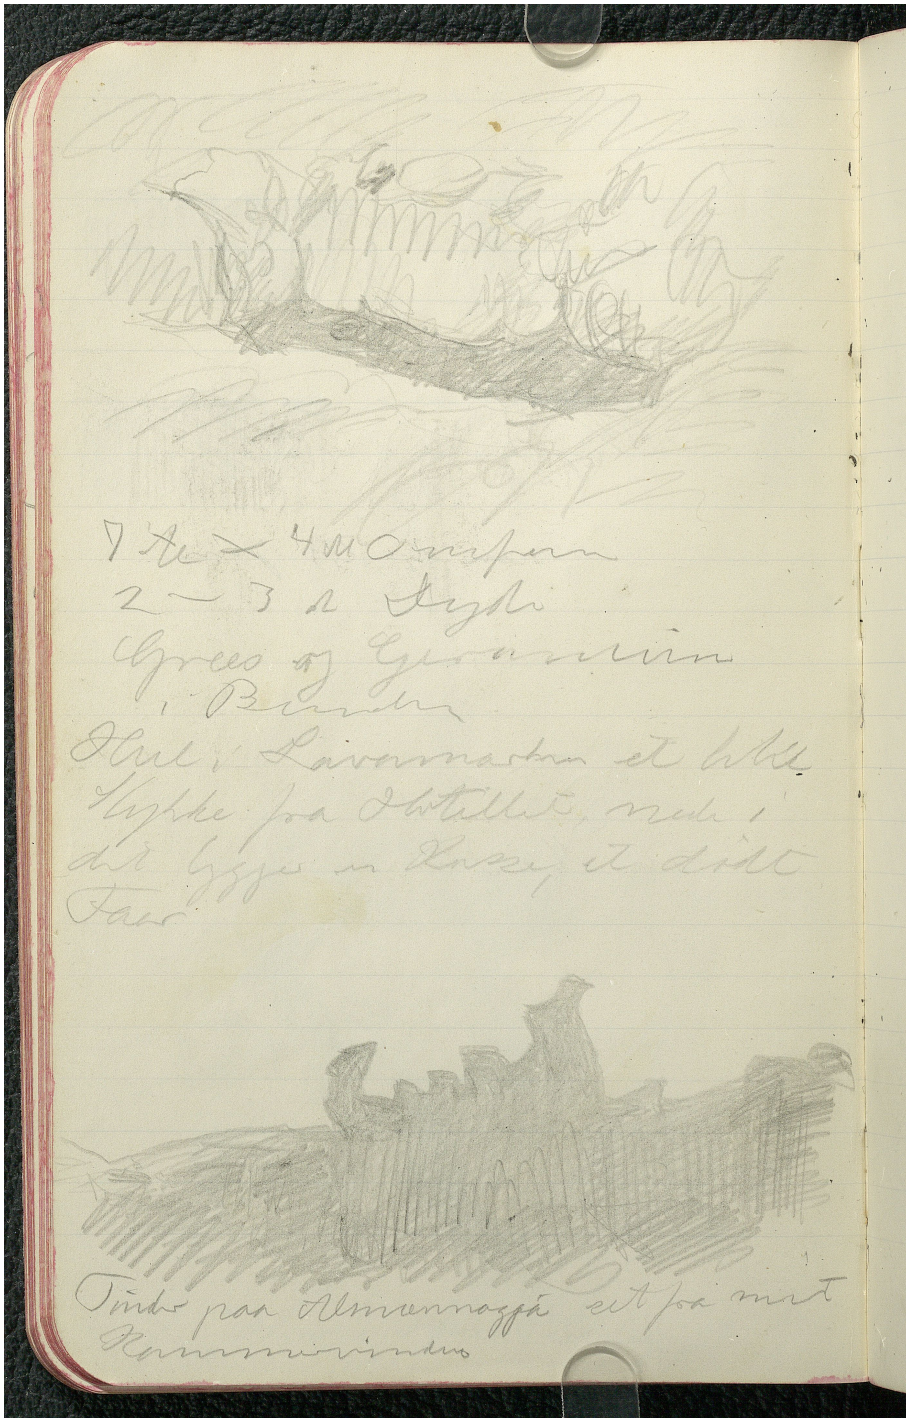 7 Al × 4 Al Omfern
2 – 3 Al Dyb
Græs og Geranium
i Bunden
Hul i Lavamarken et lille
Stykke fra Hotellet, nede i
det ligger en Kasse, et dødt
Faar
Tinder paa Almannagjá set fra mit
Kammervindue